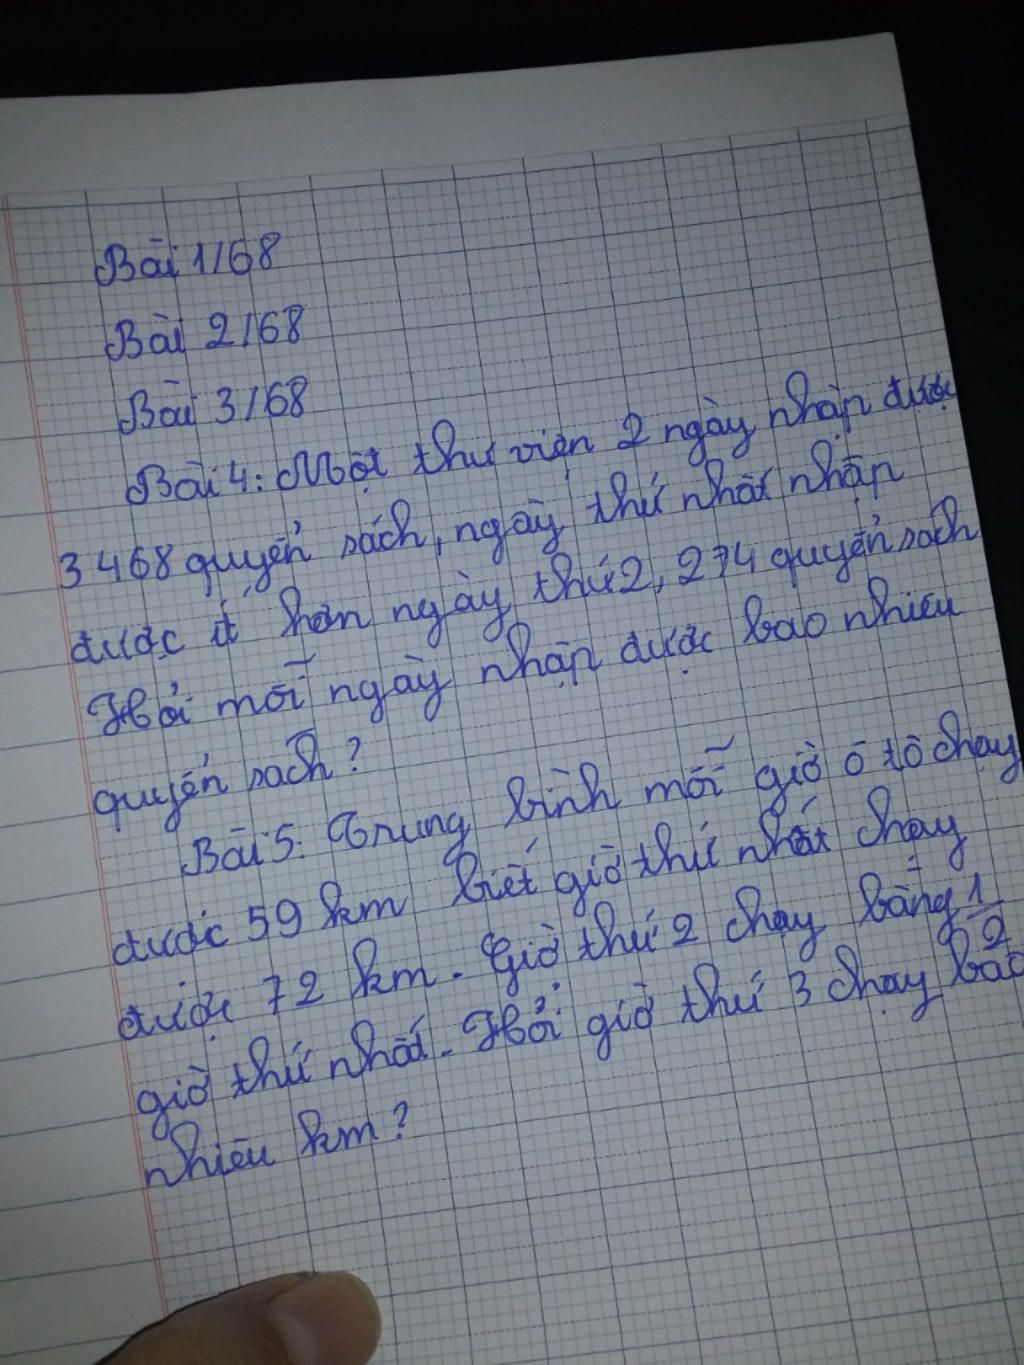 Bài 1/68
Bài 2/68
Bài 3/68
Bài 4: Một thư viện 2 ngày nhập được
3 468 quyển sách, ngày thứ nhất nhập
được ít hơn ngày thứ 2, 274 quyển sách
Hỏi mỗi ngày nhập được bao nhiêu
quyển sách?
Bài 5: Trung bình mỗi giờ ô tô chạy
được 59 km biết giờ thứ nhất chạy
được 72 km. Giờ thứ 2 chạy bằng 1/2
giờ thứ nhất. Hỏi giờ thứ 3 chạy bao
nhiêu km?